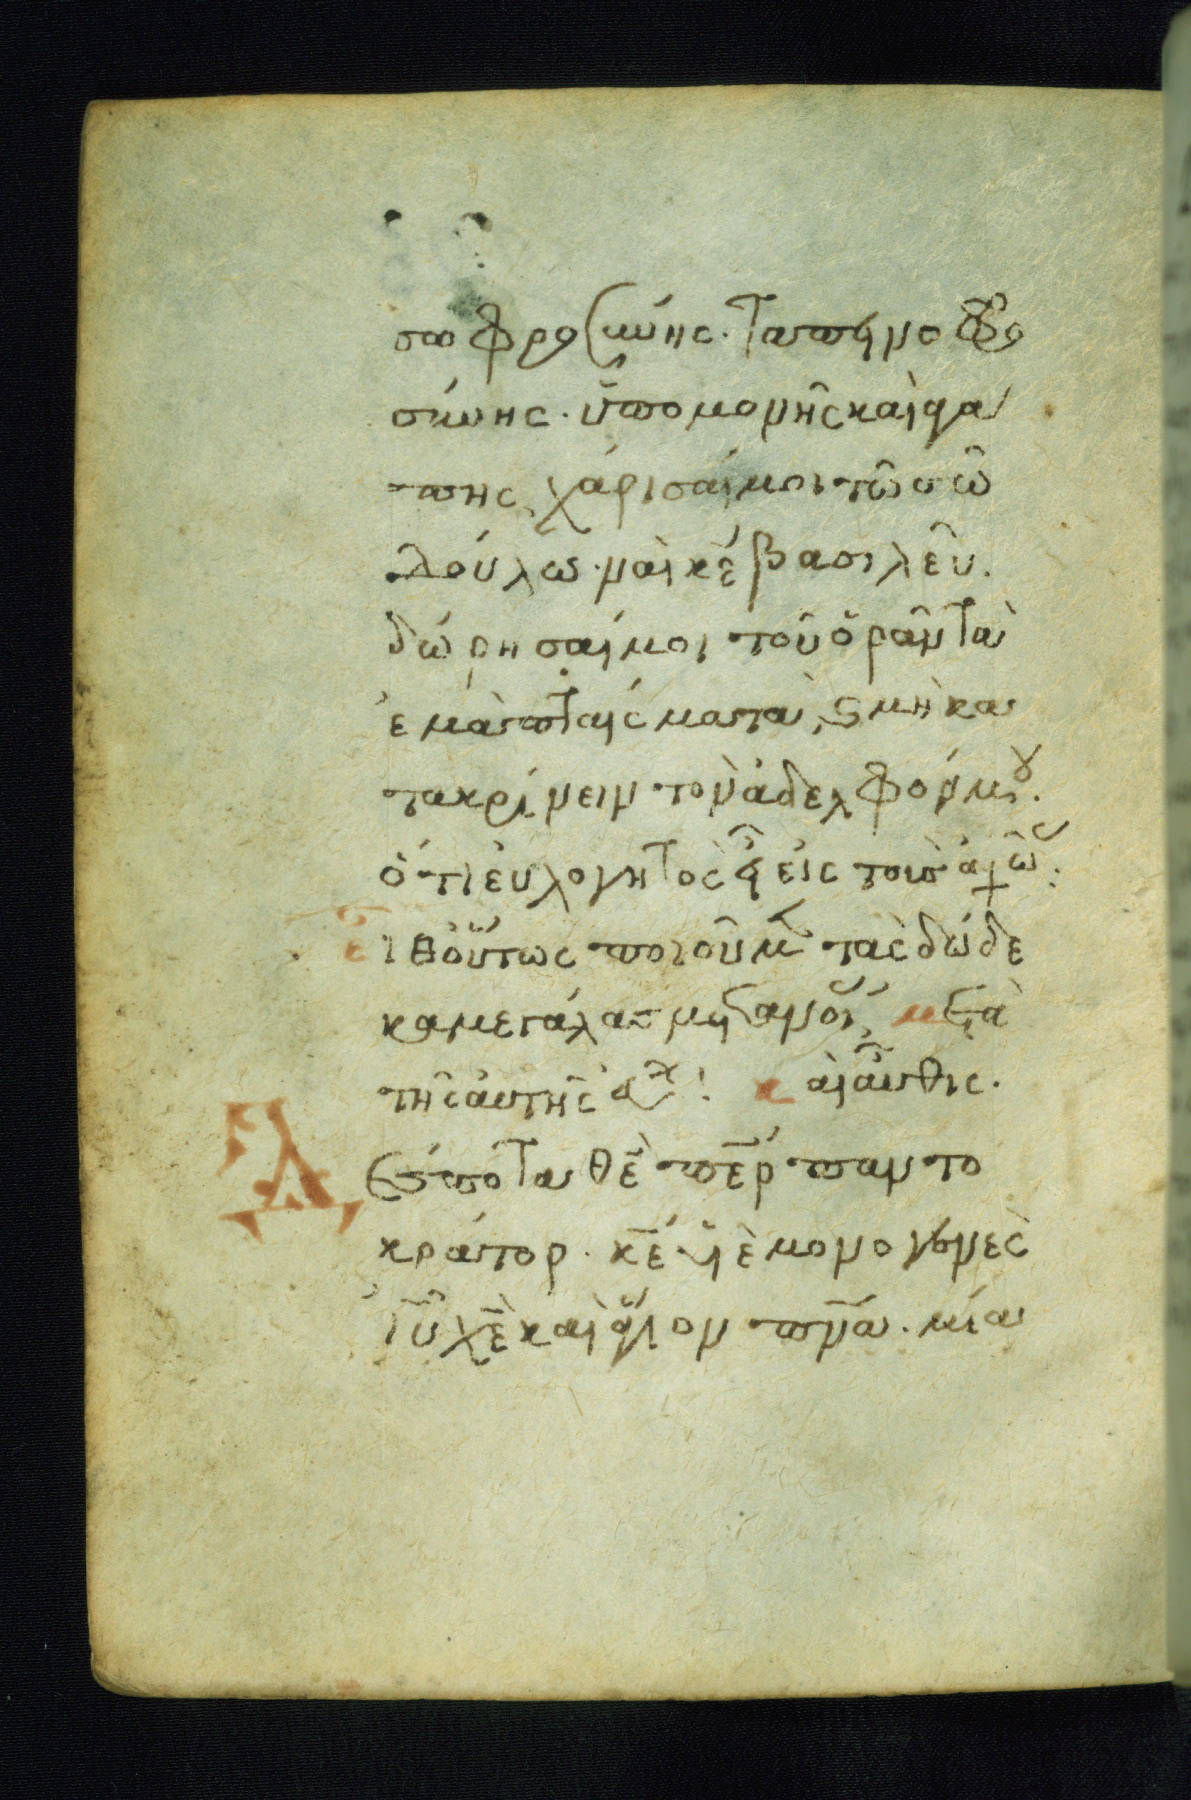 σωφροσύνης. ταπεινοφρο
σύνης. ὑπομονῆς καὶ ἀγά
πης χάρισαί μοι τῶ σῶ
δούλω. ναὶ κε βασιλεῦ.
δώρησαί μοι τοῦ ὁρᾶν τὰ
ἐμὰ πταίσματα, ϗ μὴ κα
τακρίνειν τὸν ἀδελφόν μου.
ὅτι εὐλογητὸς εἶ εἰς τοὺς αἰῶ:
Εἶθ' οὕτως ποιοῦμ τὰς δώδε
κα μετὰ
τῆς αὐτῆς εὐχ: καὶ αὖθις.
Δέσποτα θε περ παντο
κράτορ. κε υἱὲ μονογενὲς
ιυ χε καὶ ἅγιον πνα. μία